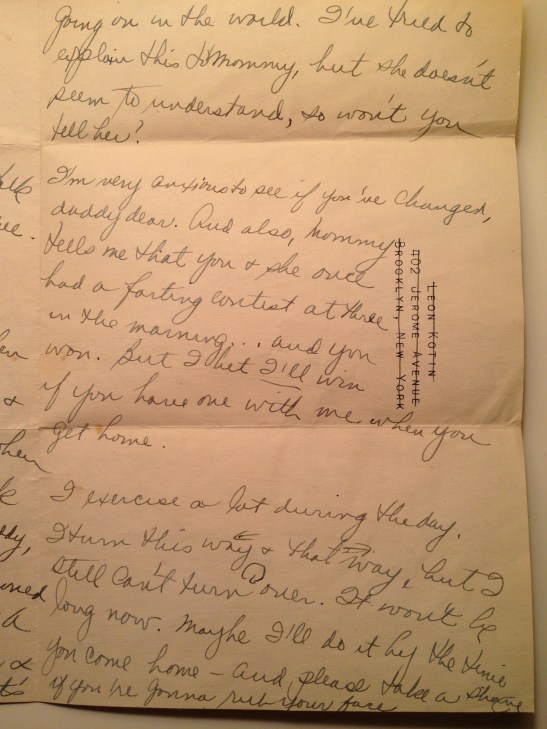 going on in the world. I've tried to
explain this to Mommy, but she doesn't
seem to understand, so won't you
tell her?
I'm very anxious to see if you've changed,
daddy dear. And also, Mommy
tells me that you & she once
had a farting contest at three
in the morning... and you
won. But I bet I'll win
if you have one with me when you
get home.
I exercise a lot during the day.
I turn this way & that way, but I
still can't turn over. It won't be
long now. Maybe I'll do it by the time
you come home – and please take a shave
if you're gonna rub your face
LEON KOTIN
402 JEROME AVENUE
BROOKLYN, NEW YORK